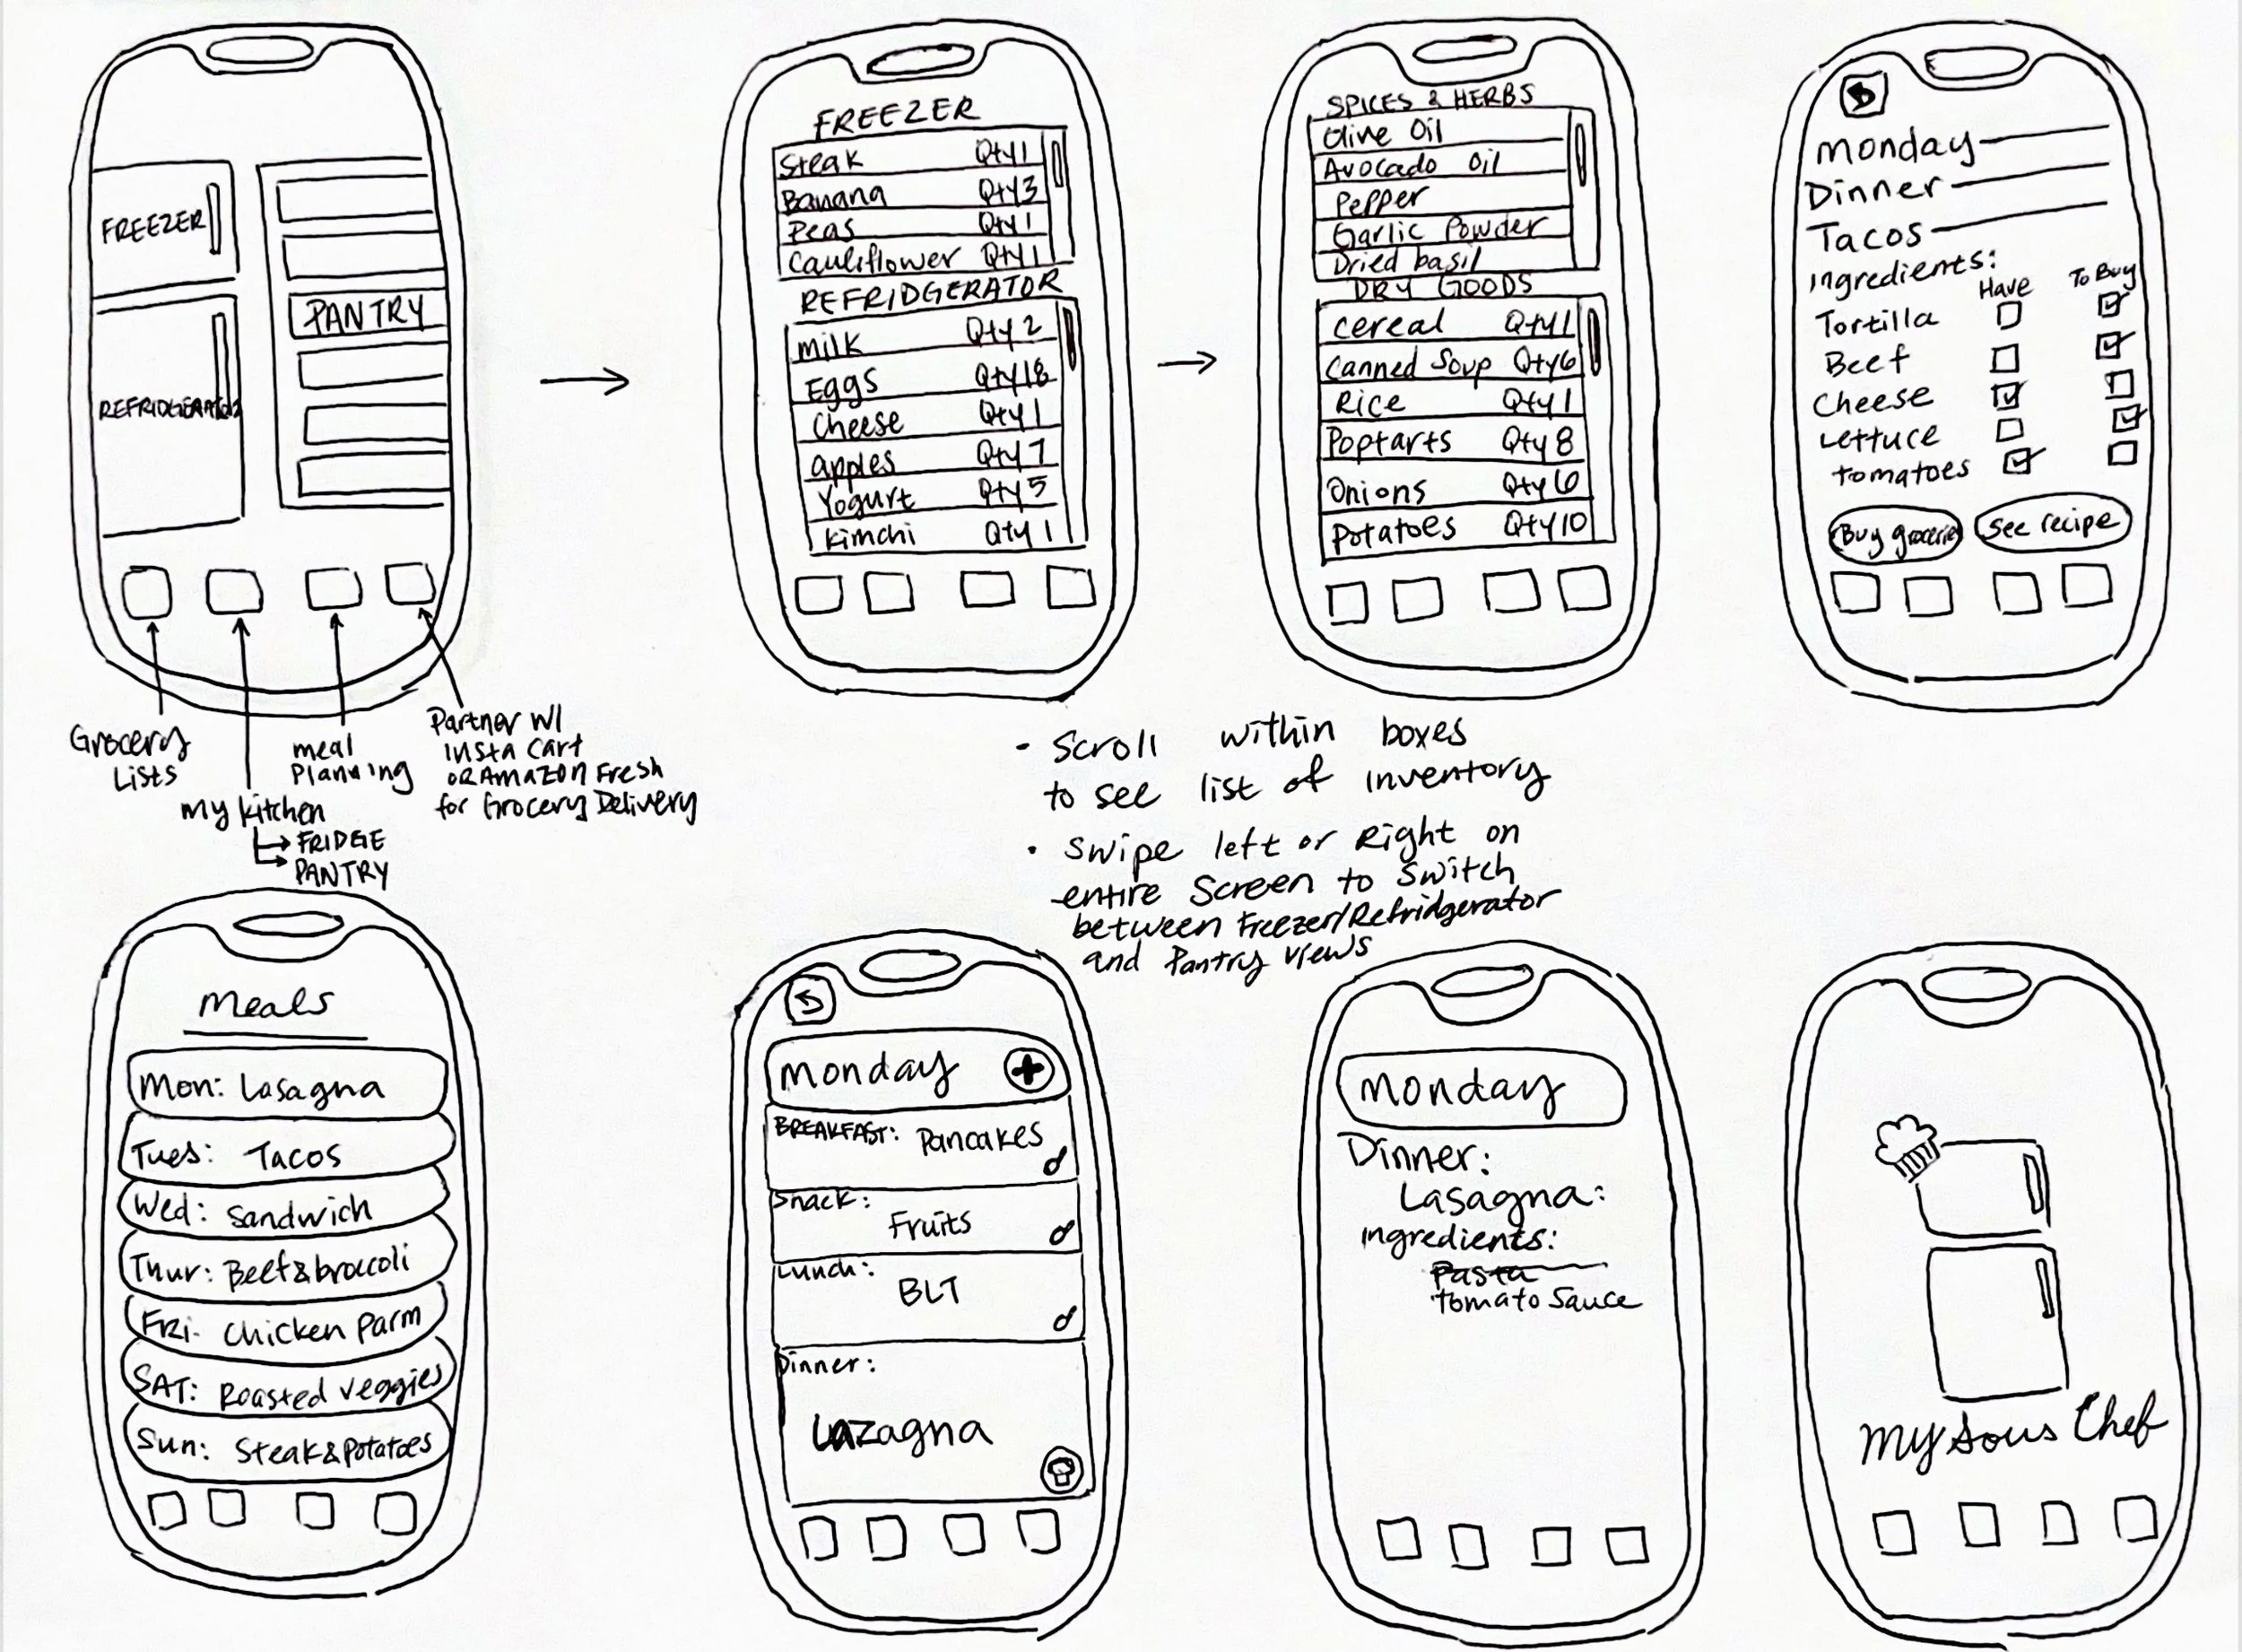 FREEZER
REFRIDGERATOR
PANTRY
Grocery
Lists
my kitchen
FRIDGE
PANTRY
meal
Planning
Partner w/
Insta Cart
OR Amazon Fresh
for Grocery Delivery
FREEZER
Steak Qty 1
Banana Qty 3
Peas Qty 1
Cauliflower Qty 1
REFRIDGERATOR
milk Qty 2
Eggs Qty 18
Cheese Qty 1
apples Qty 7
Yogurt Qty 5
Kimchi Qty 1
SPICES & HERBS
Olive Oil
Avocado Oil
Pepper
Garlic Powder
Dried basil
DRY GOODS
Cereal Qty 1
Canned Soup Qty 6
Rice Qty 1
Poptarts Qty 8
Onions Qty 6
Potatoes Qty 10
Monday
Dinner
Tacos
Ingredients:
Have To Buy
Tortilla
Beef
Cheese
Lettuce
tomatoes
Buy grocerie
See recipe
• Scroll within boxes
to see list of inventory
• Swipe left or Right on
entire Screen to Switch
between Freezer/Refridgerator
and Pantry views
Meals
Mon: Lasagna
Tues: Tacos
Wed: Sandwich
Thur: Beef & broccoli
Fri- Chicken Parm
SAT: Roasted veggies
Sun: Steak & Potatoes
Monday
BREAKFAST: Pancakes
Snack:
Fruits
Lunch:
BLT
Dinner:
Lazagna
Monday
Dinner:
Lasagna:
Ingredients:
Pasta
Tomato Sauce
My Sous Chef